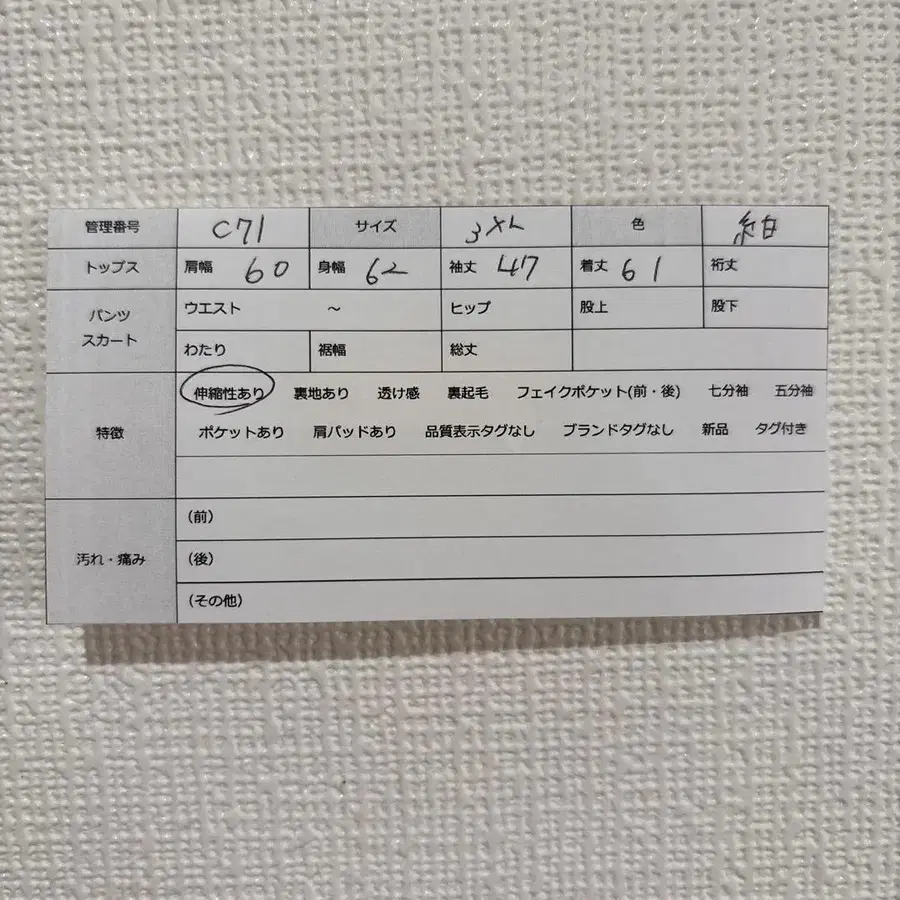 管理番号 C71 サイズ 3XL 色 紺白
トップス 肩幅 60 身幅 62 袖丈 47 着丈 61 裄丈
パンツ スカート ウエスト ～ ヒップ 股上 股下
わたり 裾幅 総丈
特徴 伸縮性あり 裏地あり 透け感 裏起毛 フェイクポケット(前・後) 七分袖 五分袖
ポケットあり 肩パッドあり 品質表示タグなし ブランドタグなし 新品 タグ付き
汚れ・痛み (前)
(後)
(その他)